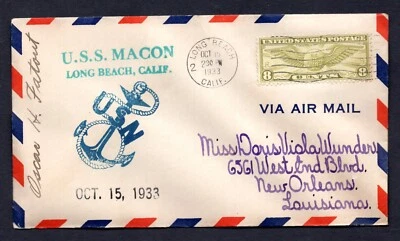 U.S.S. MACON
LONG BEACH, CALIF.
LONG BEACH
OCT
2 30 PM
1933
CALIF.
2
UNITED STATES POSTAGE
8 CENTS 8
USN
Oscar H.
VIA AIR MAIL
Miss Doris Viola Wunder,
6561 West End Blvd.
New Orleans,
Louisiana.
OCT. 15, 1933